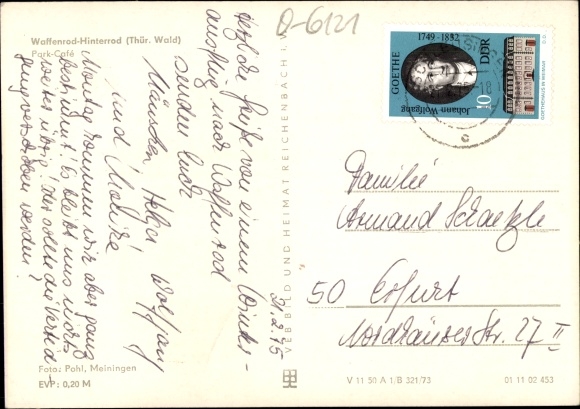 Waffenrod-Hinterrod (Thür. Wald)
Park-Café
O-6121
Herzliche Grüße von einem Winter-
ausflug nach Waffenrod
senden Euch
München Helia, Wolfgang
und Monika
Montag kommen wir aber ganz
bestimmt! Es bleibt uns nichts
weiter übrig!
werden?
21.2.75
Foto: Pohl, Meiningen
EVP: 0,20 M
VEB BILD UND HEIMAT REICHENBACH I.
GOETHE 1749-1832
Johann Wolfgang
DDR
10
GOETHEHAUS IN WEIMAR
Familie
Armand Schaetzle
50 Erfurt
Nordhäuser Str. 27 II
V 11 50 A 1/B 321/73
01 11 02 453